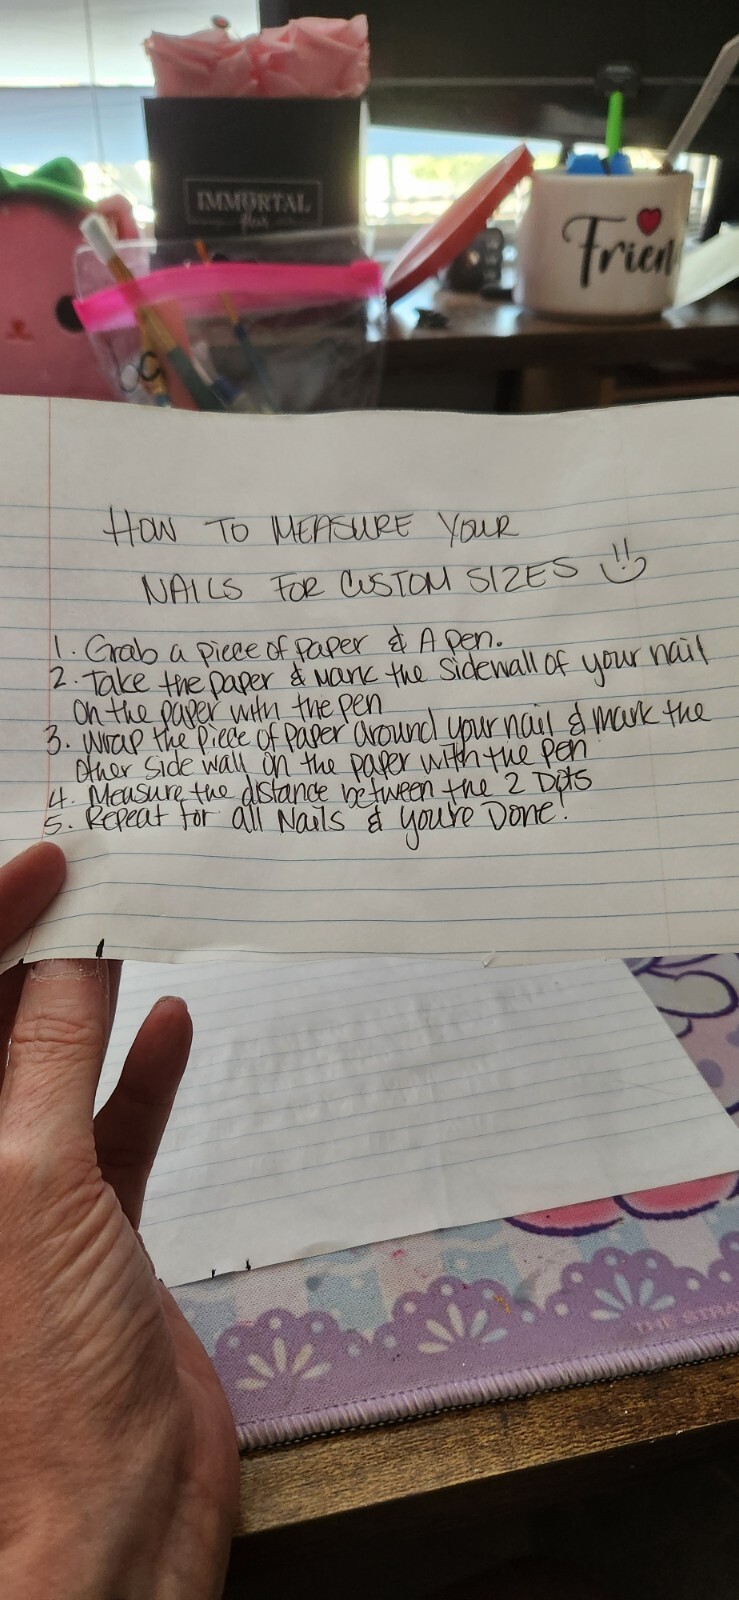 IMMORTAL
fleur
Frien
HOW TO MEASURE YOUR
NAILS FOR CUSTOM SIZES
1. Grab a piece of paper & A pen.
2. Take the paper & Mark the Sidewall of your nail
on the paper with the pen
3. Wrap the piece of paper around your nail & mark the
other side wall on the paper with the pen
4. Measure the distance between the 2 Dots
5. Repeat for all Nails & you're Done!
THE STRA